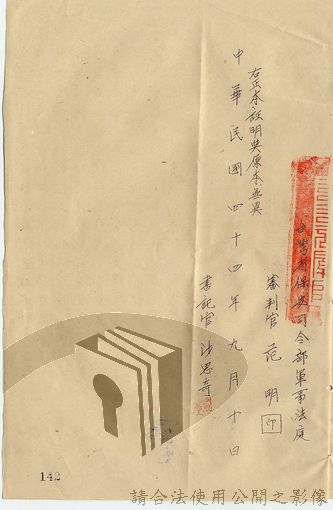 台灣省保安司令部軍事法庭
審判官 范明 印
右正本證明與原本無異
中華民國四十四年九月十日
書記官 沙思奇
142
請合法使用公開之影像